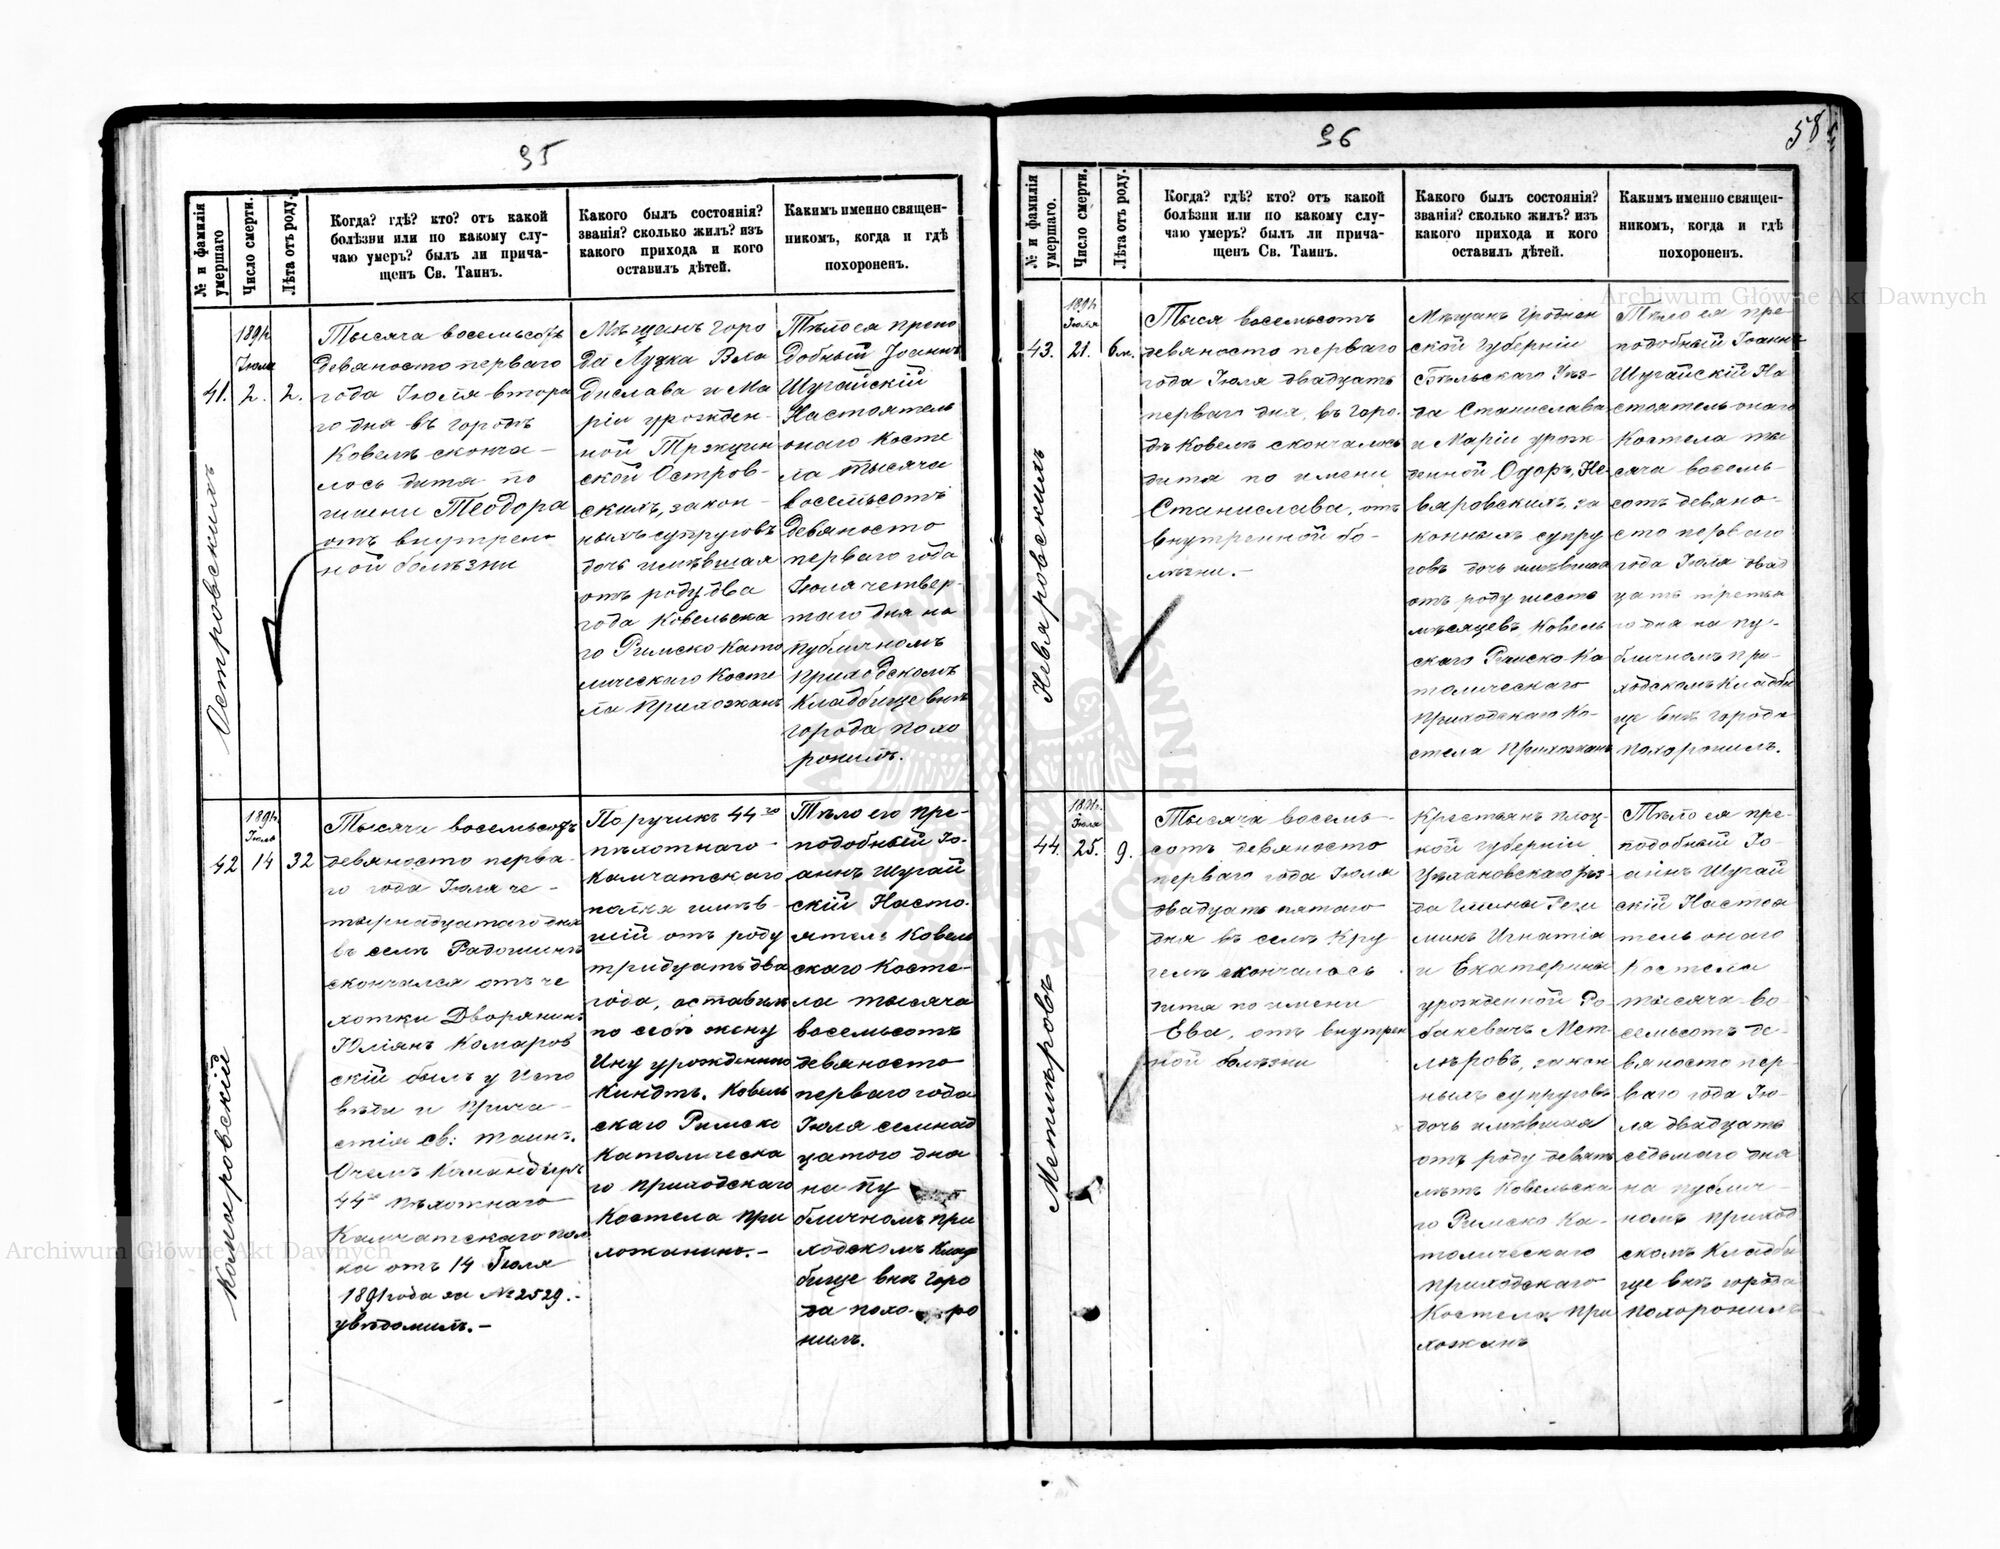 95
№ и фамилія умершаго.
Число смерти.
Лѣта отъ роду.
Когда? гдѣ? кто? отъ какой
болѣзни или по какому слу-
чаю умеръ? былъ ли прича-
щенъ Св. Таинъ.
Какого былъ состоянія?
званія? сколько жилъ? изъ
какого прихода и кого
оставилъ дѣтей.
Какимъ именно священ-
никомъ, когда и гдѣ
похороненъ.
41.
Островскихъ
1891 г.
Іюля
2.
2.
Тысяча восемьсотъ
девяносто перваго
года Іюля втора
го дня въ городѣ
Ковелѣ сконча-
лось дитя по
имени Теодора
отъ внутрен
ной болѣзни
Мѣщанъ горо
да Луцка Вла
дислава и Ма
ріи урожден-
ной Тржцин
ской Остров-
скихъ, закон-
ныхъ супруговъ
дочь имѣвшая
отъ роду два
года Ковельска
го Римско Като
лическаго Косте
ла Прихожанъ
Тѣло ея препо
добный Іоаннъ
Шугайскій
Настоятель
онаго Косте
ла тысяча
восемьсотъ
девяносто
перваго года
Іюля четвер-
таго дня на
публичномъ
приходскомъ
Кладбище внѣ
города похо
ронилъ.
42
Комаровскій
1891 г.
Іюль
14
32
Тысяча восемьсотъ
девяносто перва-
го года Іюля че-
тырнадцатаго дня
въ селѣ Радошинѣ
скончался отъ че
хотки Дворянинъ
Юліянъ Комаров
скій былъ у Испо
вѣди и Прича-
стія св: таинъ.
О чемъ Командиръ
44го пѣхотнаго
Камчатскаго пол
ка отъ 14 Іюля
1891 года за № 2529.-
увѣдомилъ.-
Поручикъ 44го
пѣхотнаго-
Камчатскаго
полка имѣв-
шій отъ роду
тридцать два
года, оставилъ
по себѣ жену
Ину урожденную
Киндтъ. Ковель
скаго Римско
Католическа
го приходскаго
Костела При
хожанинъ.-
Тѣло его пре-
подобный Іо-
аннъ Шугай
скій Насто-
ятель Ковель
скаго Косте-
ла тысяча
восемьсотъ
девяносто
перваго года
Іюля семнад
цатого дня
на пу
бличномъ при
ходскомъ клад
бище внѣ горо
да похо- ро
нилъ.
96
58
№ и фамилія умершаго.
Число смерти.
Лѣта отъ роду.
Когда? гдѣ? кто? отъ какой
болѣзни или по какому слу-
чаю умеръ? былъ ли прича-
щенъ Св. Таинъ.
Какого былъ состоянія?
званія? сколько жилъ? изъ
какого прихода и кого
оставилъ дѣтей.
Какимъ именно священ-
никомъ, когда и гдѣ
похороненъ.
43.
Невяровскихъ
1891 г.
Іюля
21.
6 м.
Тыся восемьсотъ
девяносто перваго
года Іюля двадцать
перваго дня, въ горо-
дѣ Ковелѣ скончалось
дитя по имени
Станислава, отъ
внутренной бо-
лѣзни.-
Мѣщанъ Гроднен
ской Губерніи
Бѣльскаго Уѣз-
да Станислава
и Маріи урож-
денной Одоръ, Не
вяровскихъ, за
конныхъ супру
говъ дочь имѣвшая
отъ роду шесть
мѣсяцевъ, Ковель
скаго Римско Ка
толическаго
Приходскаго Ко-
стела Прихожанъ
Тѣло ея пре-
подобный Іоаннъ
Шугайскій На
стоятель онаго
Костела ты
сяча восемь-
сотъ девяно-
сто перваго
года Іюля двад
цать третья
го дня на пу-
бличномъ при-
ходскомъ Кладби
ще внѣ города
похоронилъ.
44.
Метлѣровъ
1891 г.
Іюля
25.
9.
Тысяча восемь-
сотъ девяносто
перваго года Іюля
двадцать пятаго
дня въ селѣ Кру
гелѣ скончалось
дитя по имени
Ева, отъ внутрен
ной болѣзни
Крестьянъ Плоц-
кой Губерніи
Цѣхановскаго Уѣз
да Гмины Реги
минъ Игнатія
и Екатерины
урожденной Ро
бакевичъ Мет-
лѣровъ, закон
ныхъ супруговъ
дочь имѣвшая
отъ роду девять
лѣтъ Ковельска
го Римско Ка-
толическаго
приходскаго
Костела При
хожанъ
Тѣло ея пре-
подобный Іо-
аннъ Шугай
скій Настоя
тель онаго
Костела
тысяча во-
семьсотъ де-
вяносто пер-
ваго года Ію-
ля двадцать
седьмаго дня
на публич-
номъ приход
скомъ Кладби
ще внѣ города
похоронилъ
Archiwum Główne Akt Dawnych
Archiwum Główne Akt Dawnych